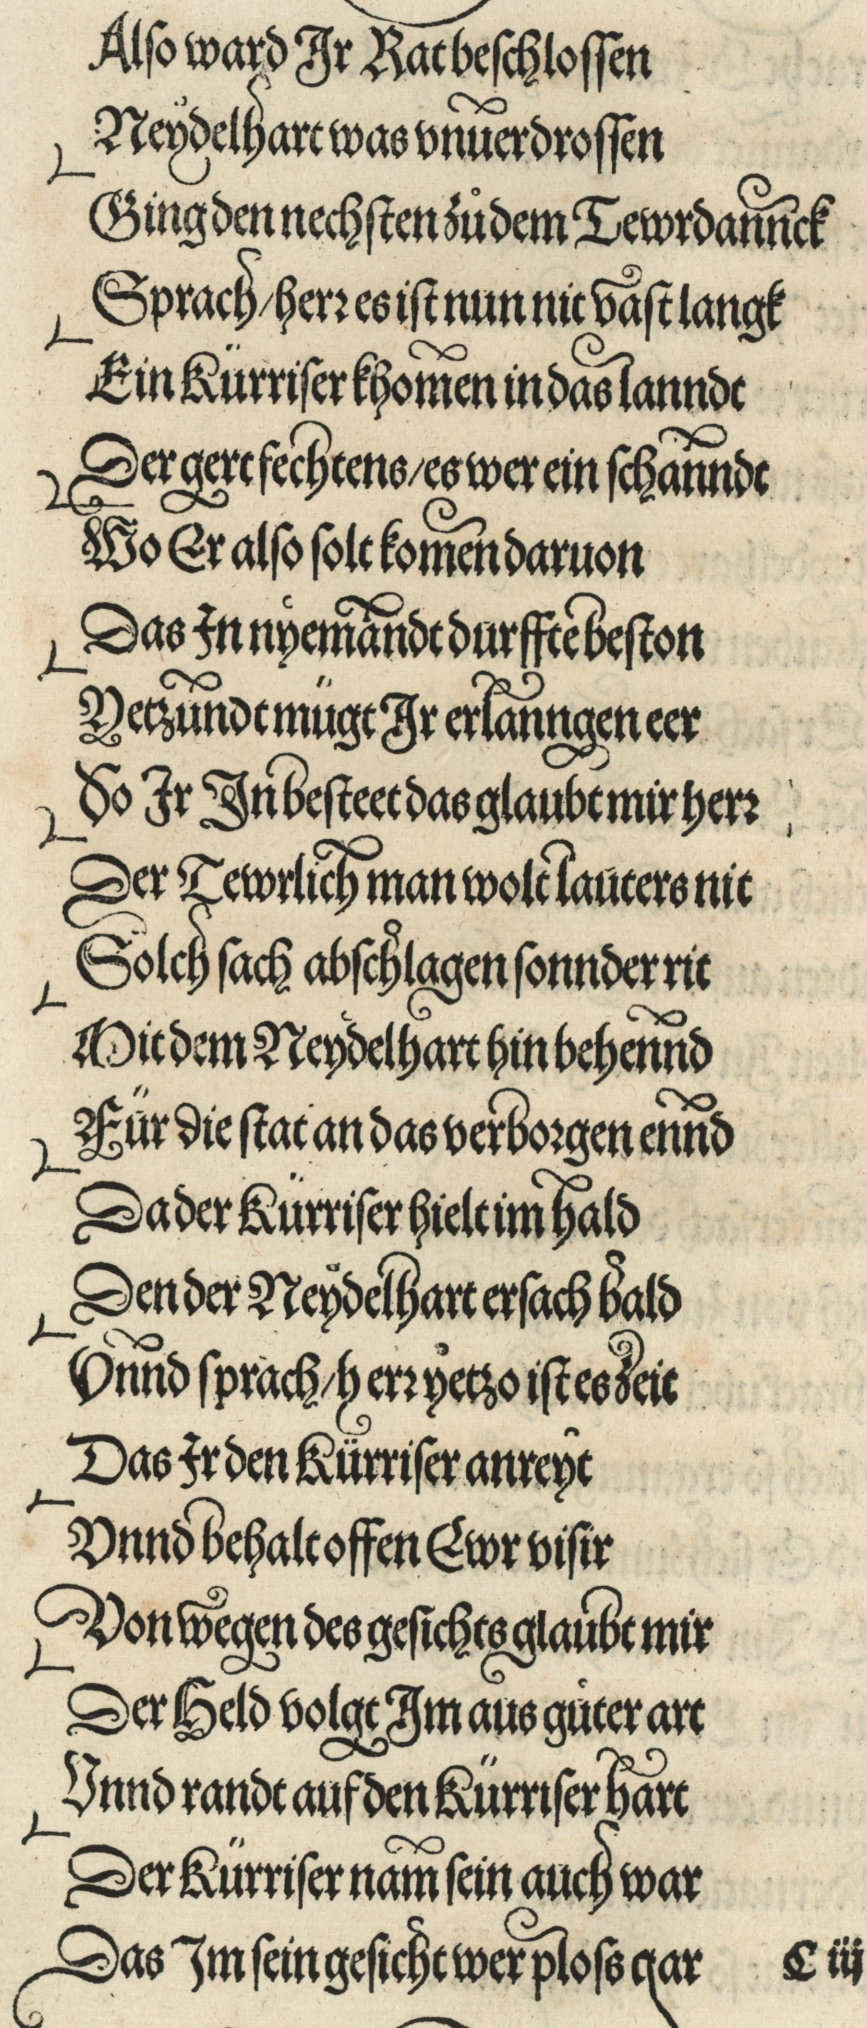 Also ward Jr Rat beschlossen
Neydelhart was vnuerdrossen
Ging den nechsten zů dem Tewrdannck
Sprach / herr es ist nun nit vast langk
Ein Kürriser khomen in das lanndt
Der gert fechtens / es wer ein schanndt
Wo Er also solt komen daruon
Das In nyemandt durffte beston
Yetzundt mügt Jr erlanngen eer
So Jr In besteet das glaubt mir herr
Der Tewrlich man wolt lauters nit
Solch sach abschlagen sonnder rit
Mit dem Neydelhart hin behennd
Für die stat an das verborgen ennd
Da der Kürriser hielt im hald
Den der Neydelhart ersach bald
Vnnd sprach / herr yetzo ist es zeit
Das Jr den Kürriser anreyt
Vnnd behalt offen Ewr visir
Von wegen des gesichts glaubt mir
Der Held volgt Im aus guter art
Vnnd randt auf den Kürriser hart
Der Kürriser nam sein auch war
Das Im sein gesicht wer ploss gar C iij